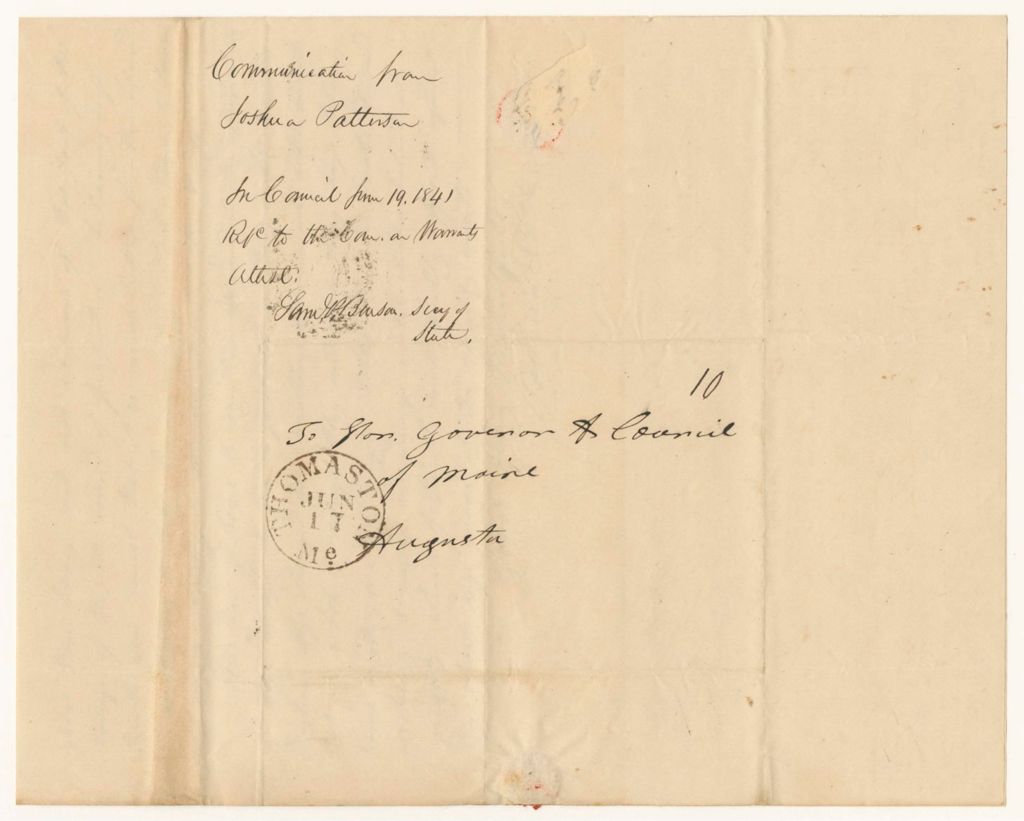 Communication from
Joshua Patterson
In Council June 19. 1841
Refd to the Com. on Warrants
Attest:
Saml P. Benson. Secy of
State.
10
To Hon. Govenor & Council
of Maine
Augusta
THOMASTON
JUN
17
Me